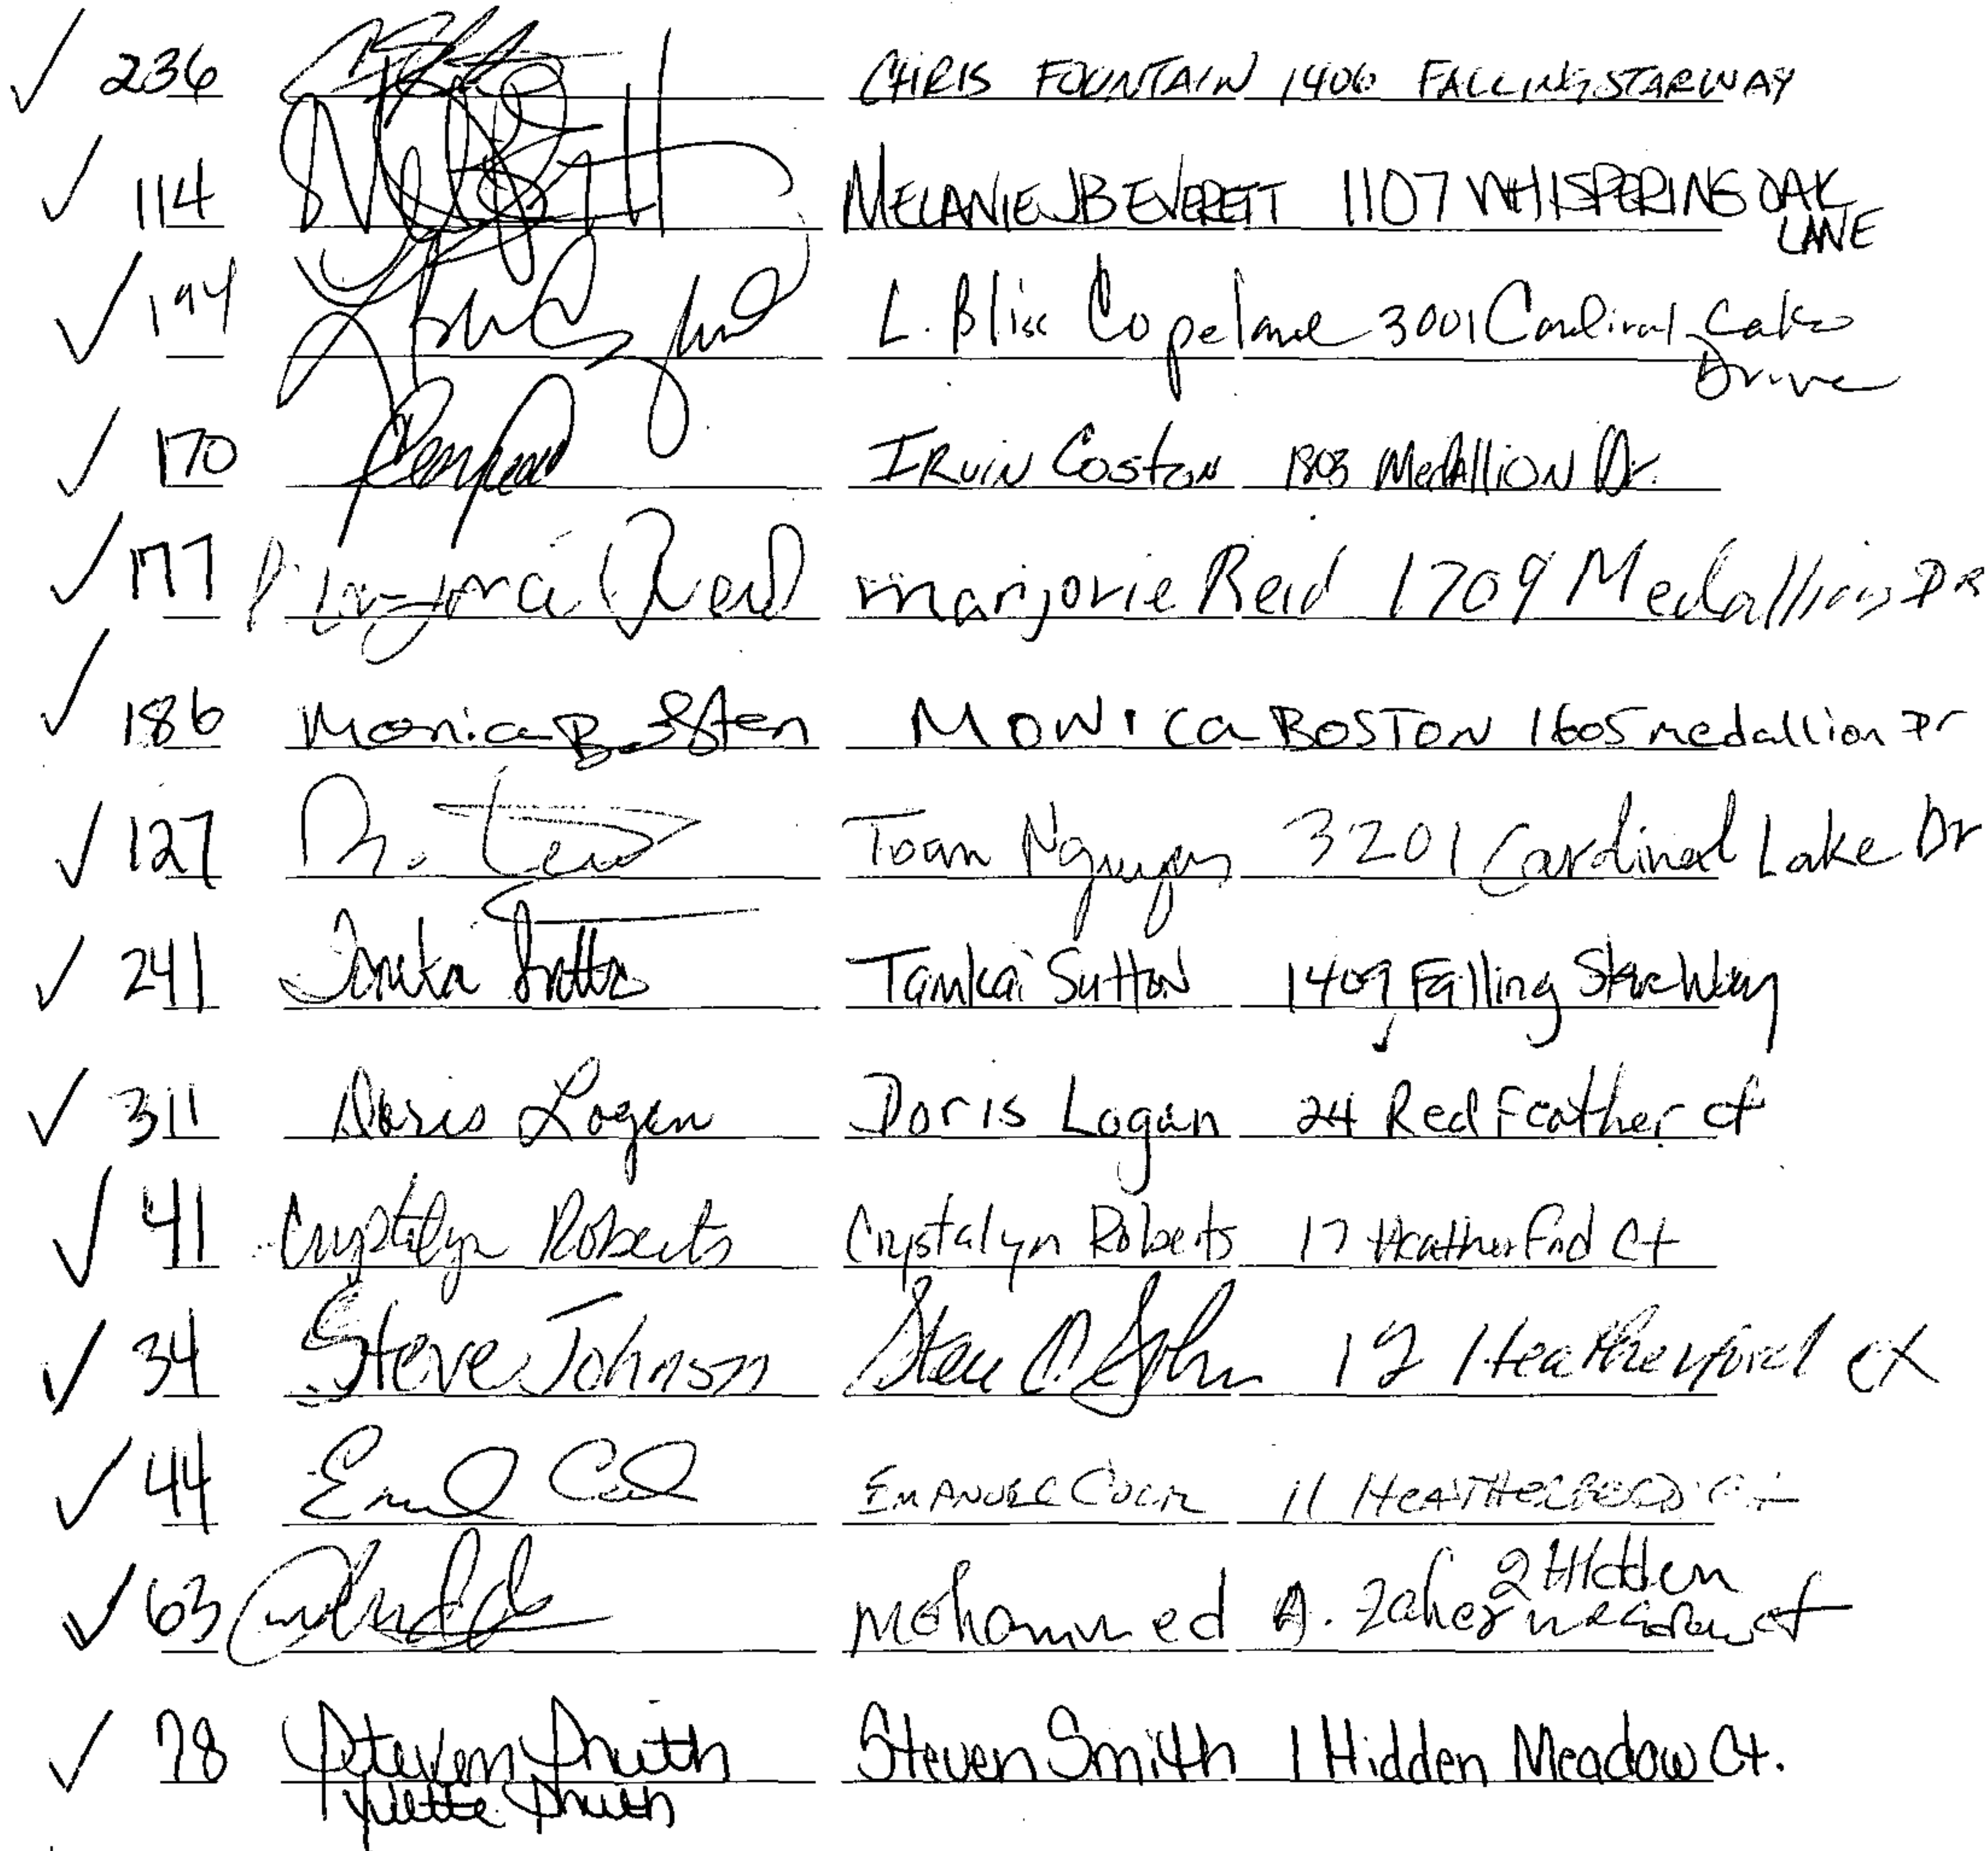 ✓ 236 CHRIS FOUNTAIN 1406 FALLING STAR WAY
✓ 114 MELANIE JB EVERETT 1107 WHISPERING OAK
LANE
✓ 194 L. Bliss Copeland 3001 Cardinal Lake
Drive
✓ 170 IRVIN Coston 1803 Medallion Dr.
✓ 177 Marjorie Reid marjorie Reid 1709 Medallion DR
✓ 186 Monica Boston MONICa BOSTON 1605 medallion Dr
✓ 127 Toan Nguyen 3201 Cardinal Lake Dr
✓ 241 Sutton Tamkai Sutton 1409 Falling Star Way
✓ 311 Doris Logan Doris Logan 24 Red Feather ct
✓ 41 Crystalyn Roberts Crystalyn Roberts 17 Ct
✓ 34 Steve Johnson 12 Heatherford ct
✓ 44 11
✓ 63 Mohammed A. Zaher 2 Hidden
meadow ct
✓ 78 Steven Smith Steven Smith 1 Hidden Meadow Ct.
Yvette Smith